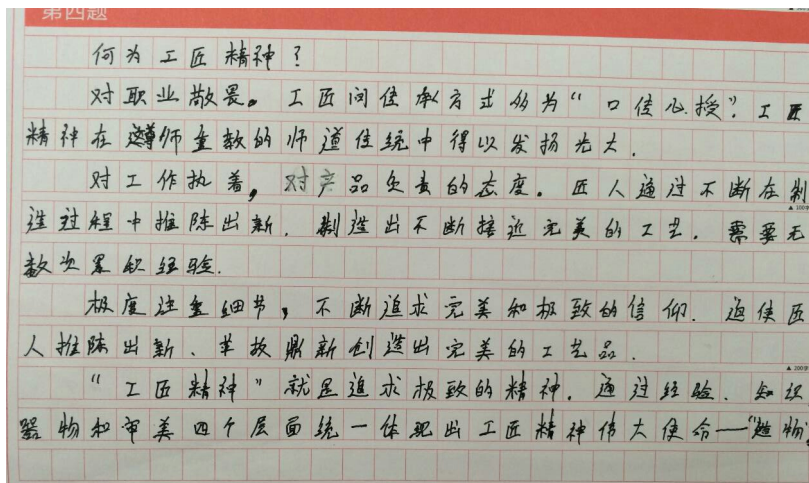 第四题
何为工匠精神?
对职业敬畏。工匠间传承方式多为“口传心授”.工匠
精神在遵师重教的师道传统中得以发扬光大.
对工作执着,对产品负责的态度。匠人通过不断在制
▲100字
造过程中推陈出新.制造出不断接近完美的工艺.需要无
数次累积经验.
极度注重细节,不断追求完美和极致的信仰.迫使匠
人推陈出新、革故鼎新创造出完美的工艺品.
▲200字
“工匠精神”就是追求极致的精神.通过经验、知识
器物和审美四个层面统一体现出工匠精神伟大使命——“造物”